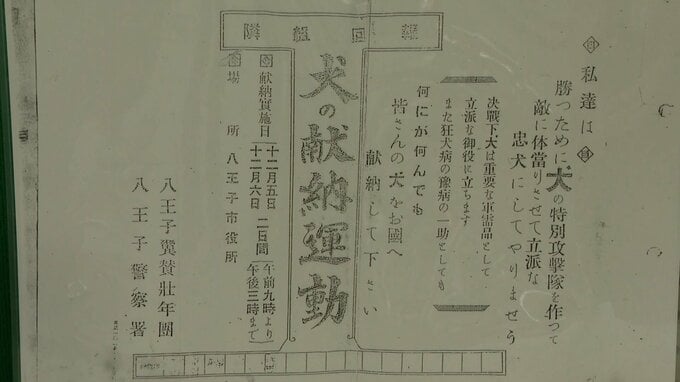 隣組回報
私達は
勝つために犬の特別攻撃隊を作つて
敵に体當りさせて立派な
忠犬にしてやりませう
決戰下犬は重要な軍需品として
立派な御役に立ちます
また狂犬病の豫病の一助としても
何にが何んでも
皆さんの犬をお國へ
献納して下さい
犬の献納運動
献納實施日 十二月五日 十二月六日 二日間 午前九時より 午後三時まで
會場所 八王子市役所
八王子翼賛壯年團
八王子警察署